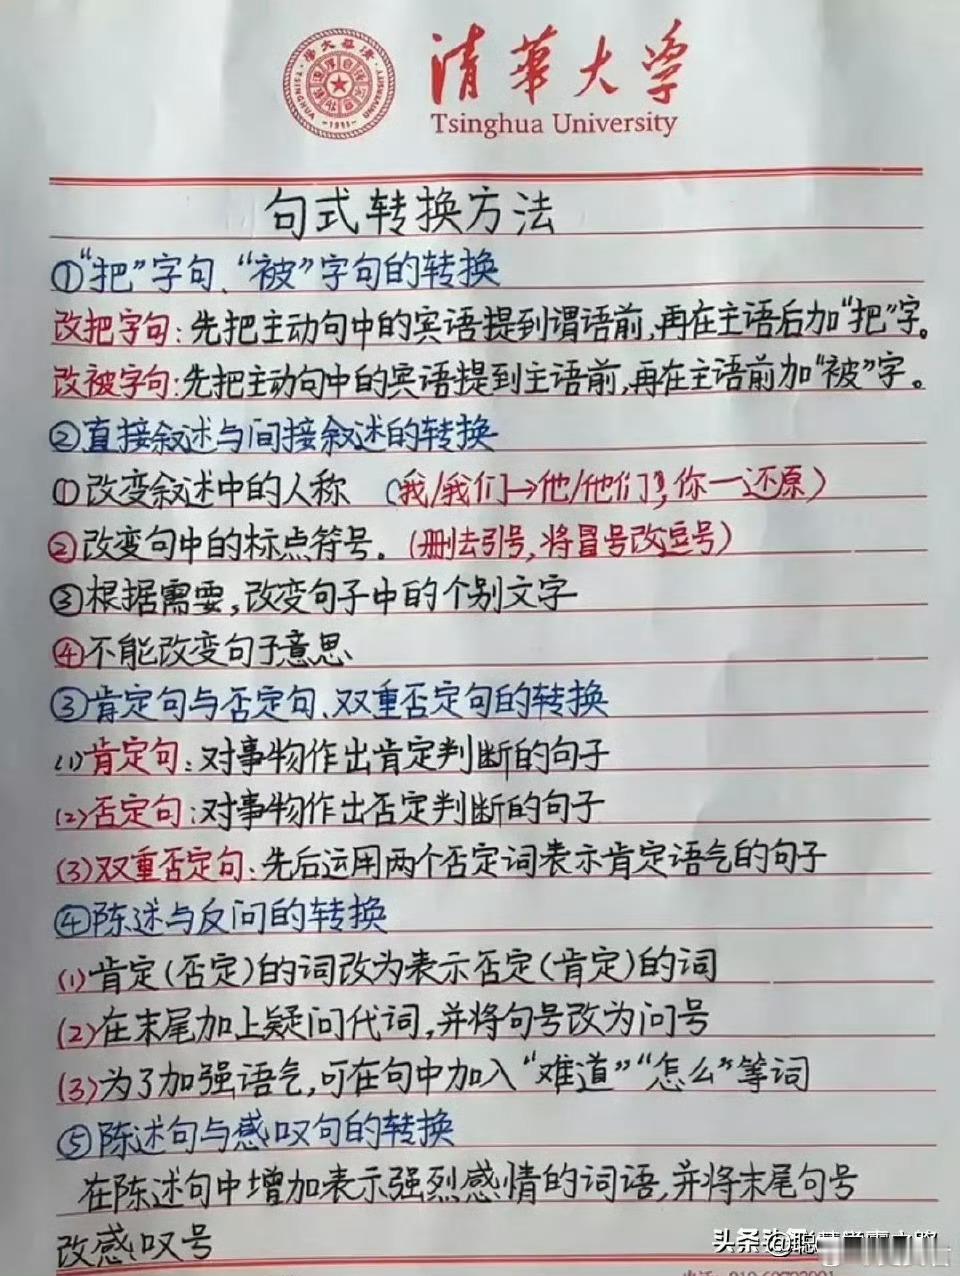 清華大学
Tsinghua University
句式转换方法
①“把”字句、“被”字句的转换
改把字句:先把主动句中的宾语提到谓语前,再在主语后加“把”字。
改被字句:先把主动句中的宾语提到主语前,再在主语前加“被”字。
②直接叙述与间接叙述的转换
①改变叙述中的人称 (我/我们→他/他们,你一还原)
②改变句中的标点符号。(删去引号,将冒号改逗号)
③根据需要,改变句子中的个别文字
④不能改变句子意思、
③肯定句与否定句、双重否定句的转换
(1)肯定句:对事物作出肯定判断的句子
(2)否定句:对事物作出否定判断的句子
(3)双重否定句:先后运用两个否定词表示肯定语气的句子
④陈述与反问的转换
(1)肯定(否定)的词改为表示否定(肯定)的词
(2)在末尾加上疑问代词,并将句号改为问号
(3)为了加强语气,可在句中加入“难道”“怎么”等词
⑤陈述句与感叹句的转换
在陈述句中增加表示强烈感情的词语,并将末尾句号
改感叹号
头条 @聪